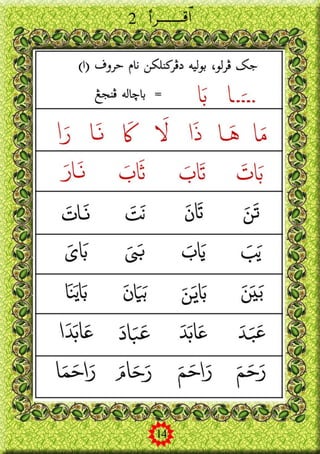 اقـــرأ 2
جک ڤرلو، بوليه دڤرکنلکن نام حروف (ا)
ـَـا بَا = باچاله ڤنجڠ
مَا هَـا ذَا لَا كَا نَـا رَا
بَاتَ تَابَ ثَابَ نَـارَ
تَنَ تَانَ نَتَ نَـاتَ
يَبَ يَابَ بَىَ بَاىَ
بَيَنَ بَايَنَ بَيَانَ بَايَنَا
عَبَدَ عَابَدَ عَبَادَ عَابَدَا
رَحَمَ رَاحَمَ رَحَامَ رَاحَمَا
14